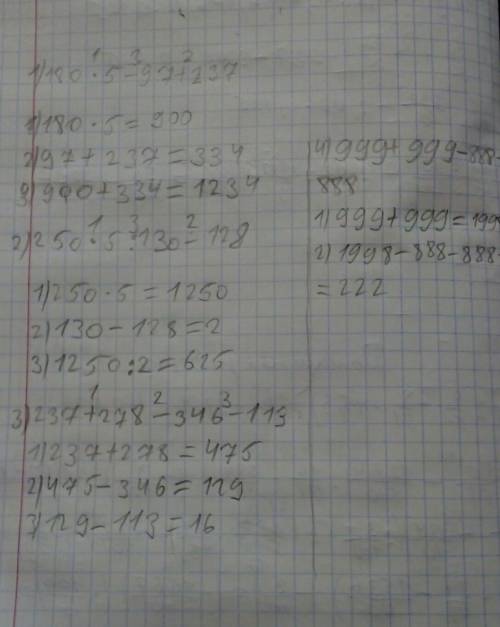 1)180·5-97+237
1 3 2
1)180·5=900
2)97+237=334
3)900+334=1234
2)250·5:130-128
1 3 2
1)250·5=1250
2)130-128=2
3)1250:2=625
3)237+278-346-113
1 2 3
1)237+278=475
2)475-346=129
3)129-113=16
4)999+999-888-
888
1)999+999=199
2)1998-888-888
=222